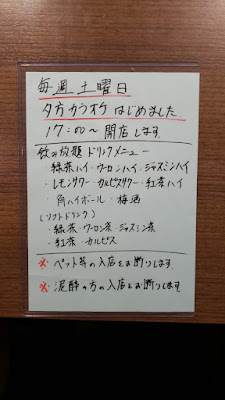 毎週土曜日
夕方カラオケはじめました
17:00〜開店します
飲み放題ドリンクメニュー
緑茶ハイ・ウーロンハイ・ジャスミンハイ
・レモンサワー・カルピスサワー・紅茶ハイ
・角ハイボール・梅酒
(ソフトドリンク)
・緑茶・ウーロン茶・ジャスミン茶
・紅茶・カルピス
※ペット等の入店をお断りします
※泥酔の方の入店をお断りします